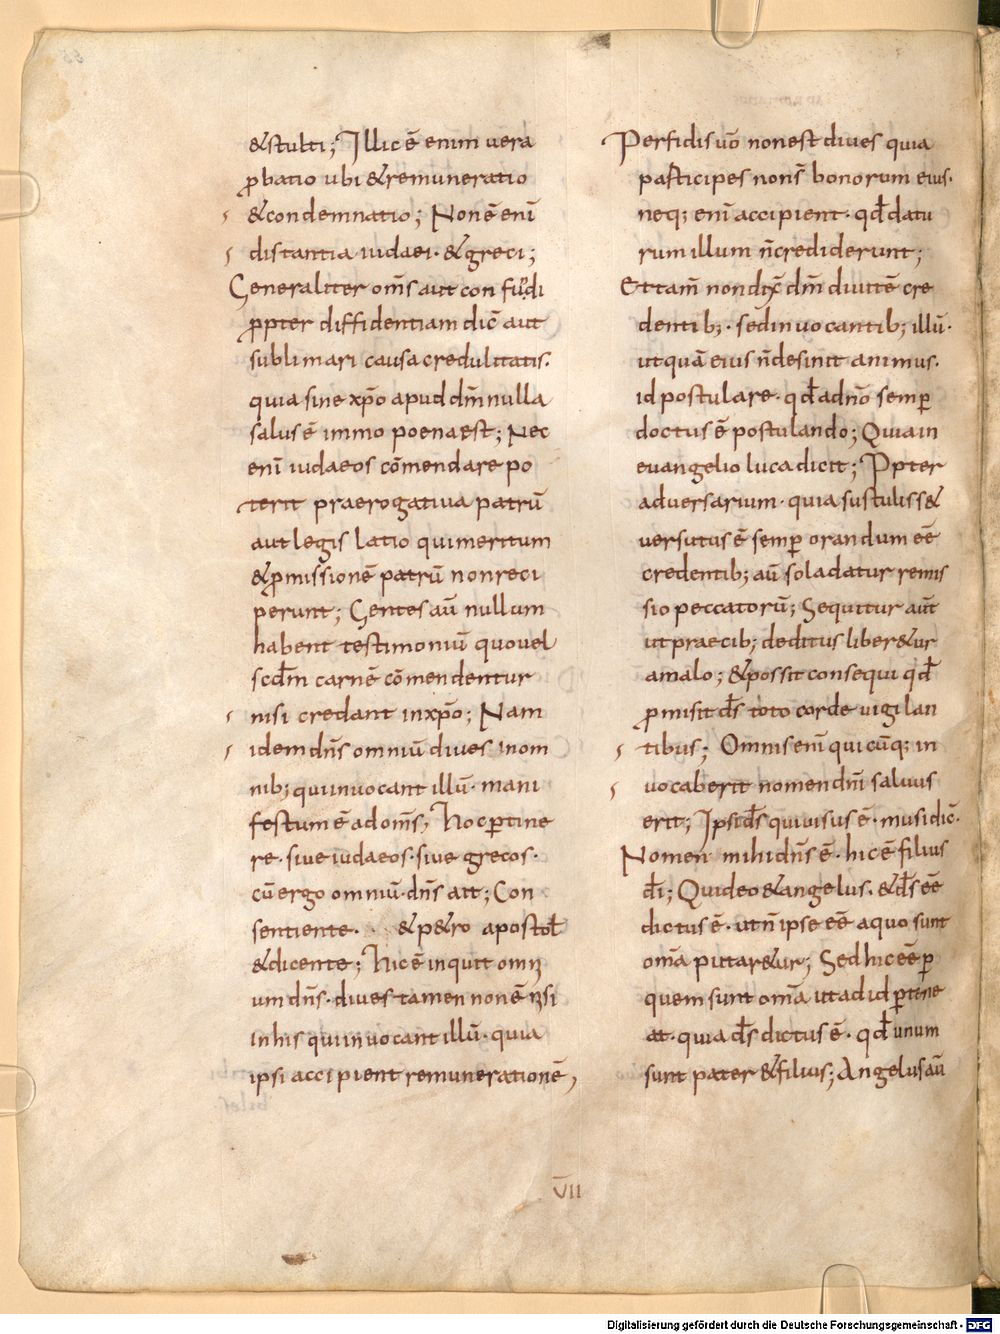 &stulti; Illic ē enim uera
ꝓbatio ubi &remuneratio
&condemnatio; Non ē enī
distantia iudaei · & greci;
Generaliter om̄s aut confundi
ꝓpter diffidentiam dic̄ aut
sublimari causa credulitatis.
quia sine xp̄o apud dm̄ nulla
salus ē immo poena est; Nec
enī iudaeos cōmendare po
terit praerogatiua patrū
aut legis latio qui meritum
& ꝓmissionē patrū non reci
perunt; Gentes aū nullum
habent testimoniū quo uel
scd̄m carnē cōmendentur
nisi credant in xp̄o; Nam
idem dn̄s omniū diues in om
nib; qui inuocant illū · mani
festum ē ad om̄s; Hoc ꝑtine
re · siue iudaeos · siue grecos ·
cū ergo omniū · dn̄s ait; Con
sentiente · & p&ro apostoł
& dicente; Hic ē inquit omn
um dn̄s · diues tamen non ē nisi
in his qui inuocant illū · quia
ipsi accipient remunerationē,
VII
Perfidis uō non est diues quia
participes non s̄ bonorum eius.
neq; enī accipient · qd̄ datu
rum illum n̄ crediderunt;
Et tam̄ non dix̄ dm̄ diuitē cre
dentib; · sed inuocantib; illū ·
ut quā eius n̄ desinit animus.
id postulare · qd̄ ad nō semꝑ
doctus ē postulando; Quia in
euangelio luca dicit; Ppter
aduersarium · quia sustuliss&
uersutus ē semꝑ orandum eē
credentib; aū sola datur remis
sio peccatorū; Sequitur aūt
ut praecib; deditus liber&ur
a malo; & possit consequi qd̄
ꝓmisit ds̄ toto corde uigilan
tibus; Omnis enī quicūq; in
uocaberit nomen dn̄i saluus
erit; Ipse ds̄ qui uisus ē · musi dic̄ ·
Nomen mihi dn̄s ē · hic ē filius
dī; Qui deo & angelus · & ds̄ eē
dictus ē · ut n̄ ipse eē a quo sunt
om̄a putar&ur; Sed hic eē ꝑ
quem sunt om̄a ut ad id ꝑtine
at · quia ds̄ dictus ē · qd̄ unum
sunt pater & filius; Angelus aū
Digitalisierung gefördert durch die Deutsche Forschungsgemeinschaft - DFG